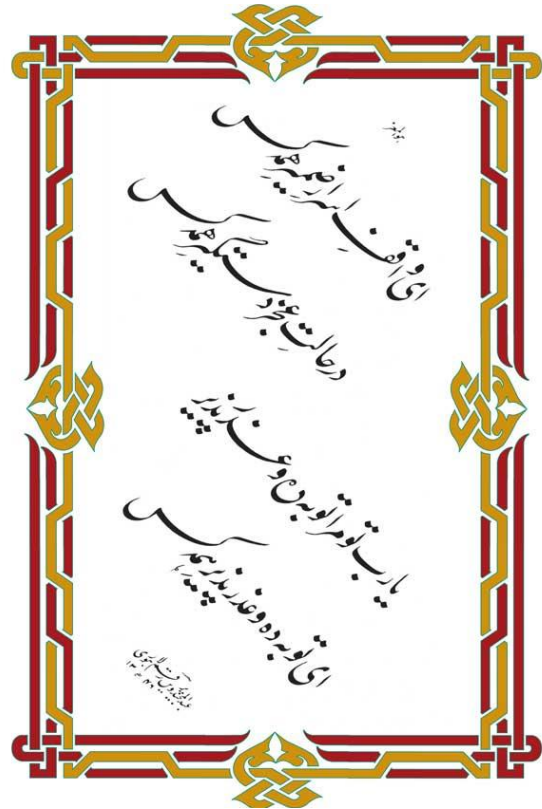 ای واقفِ اسرارِ ضمیرِ همه کس
در حالتِ عجز دستگیرِ همه کس
یا رب تو مرا توبه ده و عذر پذیر
ای توبه ده و عذر پذیرِ همه کس